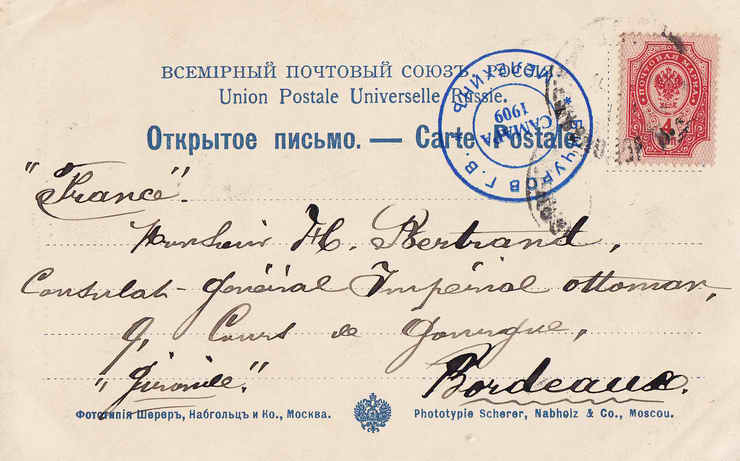 ВСЕМІРНЫЙ ПОЧТОВЫЙ СОЮЗЪ. РОССІЯ.
Union Postale Universelle Russie.
Открытое письмо. — Carte Postale.
САМАРА
1909
ПОЧТОВАЯ МАРКА
4
"France".
Monsieur H. Bertrand,
Consulat-Général Impérial ottoman,
9, Cours de Gourgue,
"Gironde."
Bordeaux.
Фототипія Шереръ, Набгольцъ и Ко., Москва.
Phototypie Scherer, Nabholz & Co., Moscou.